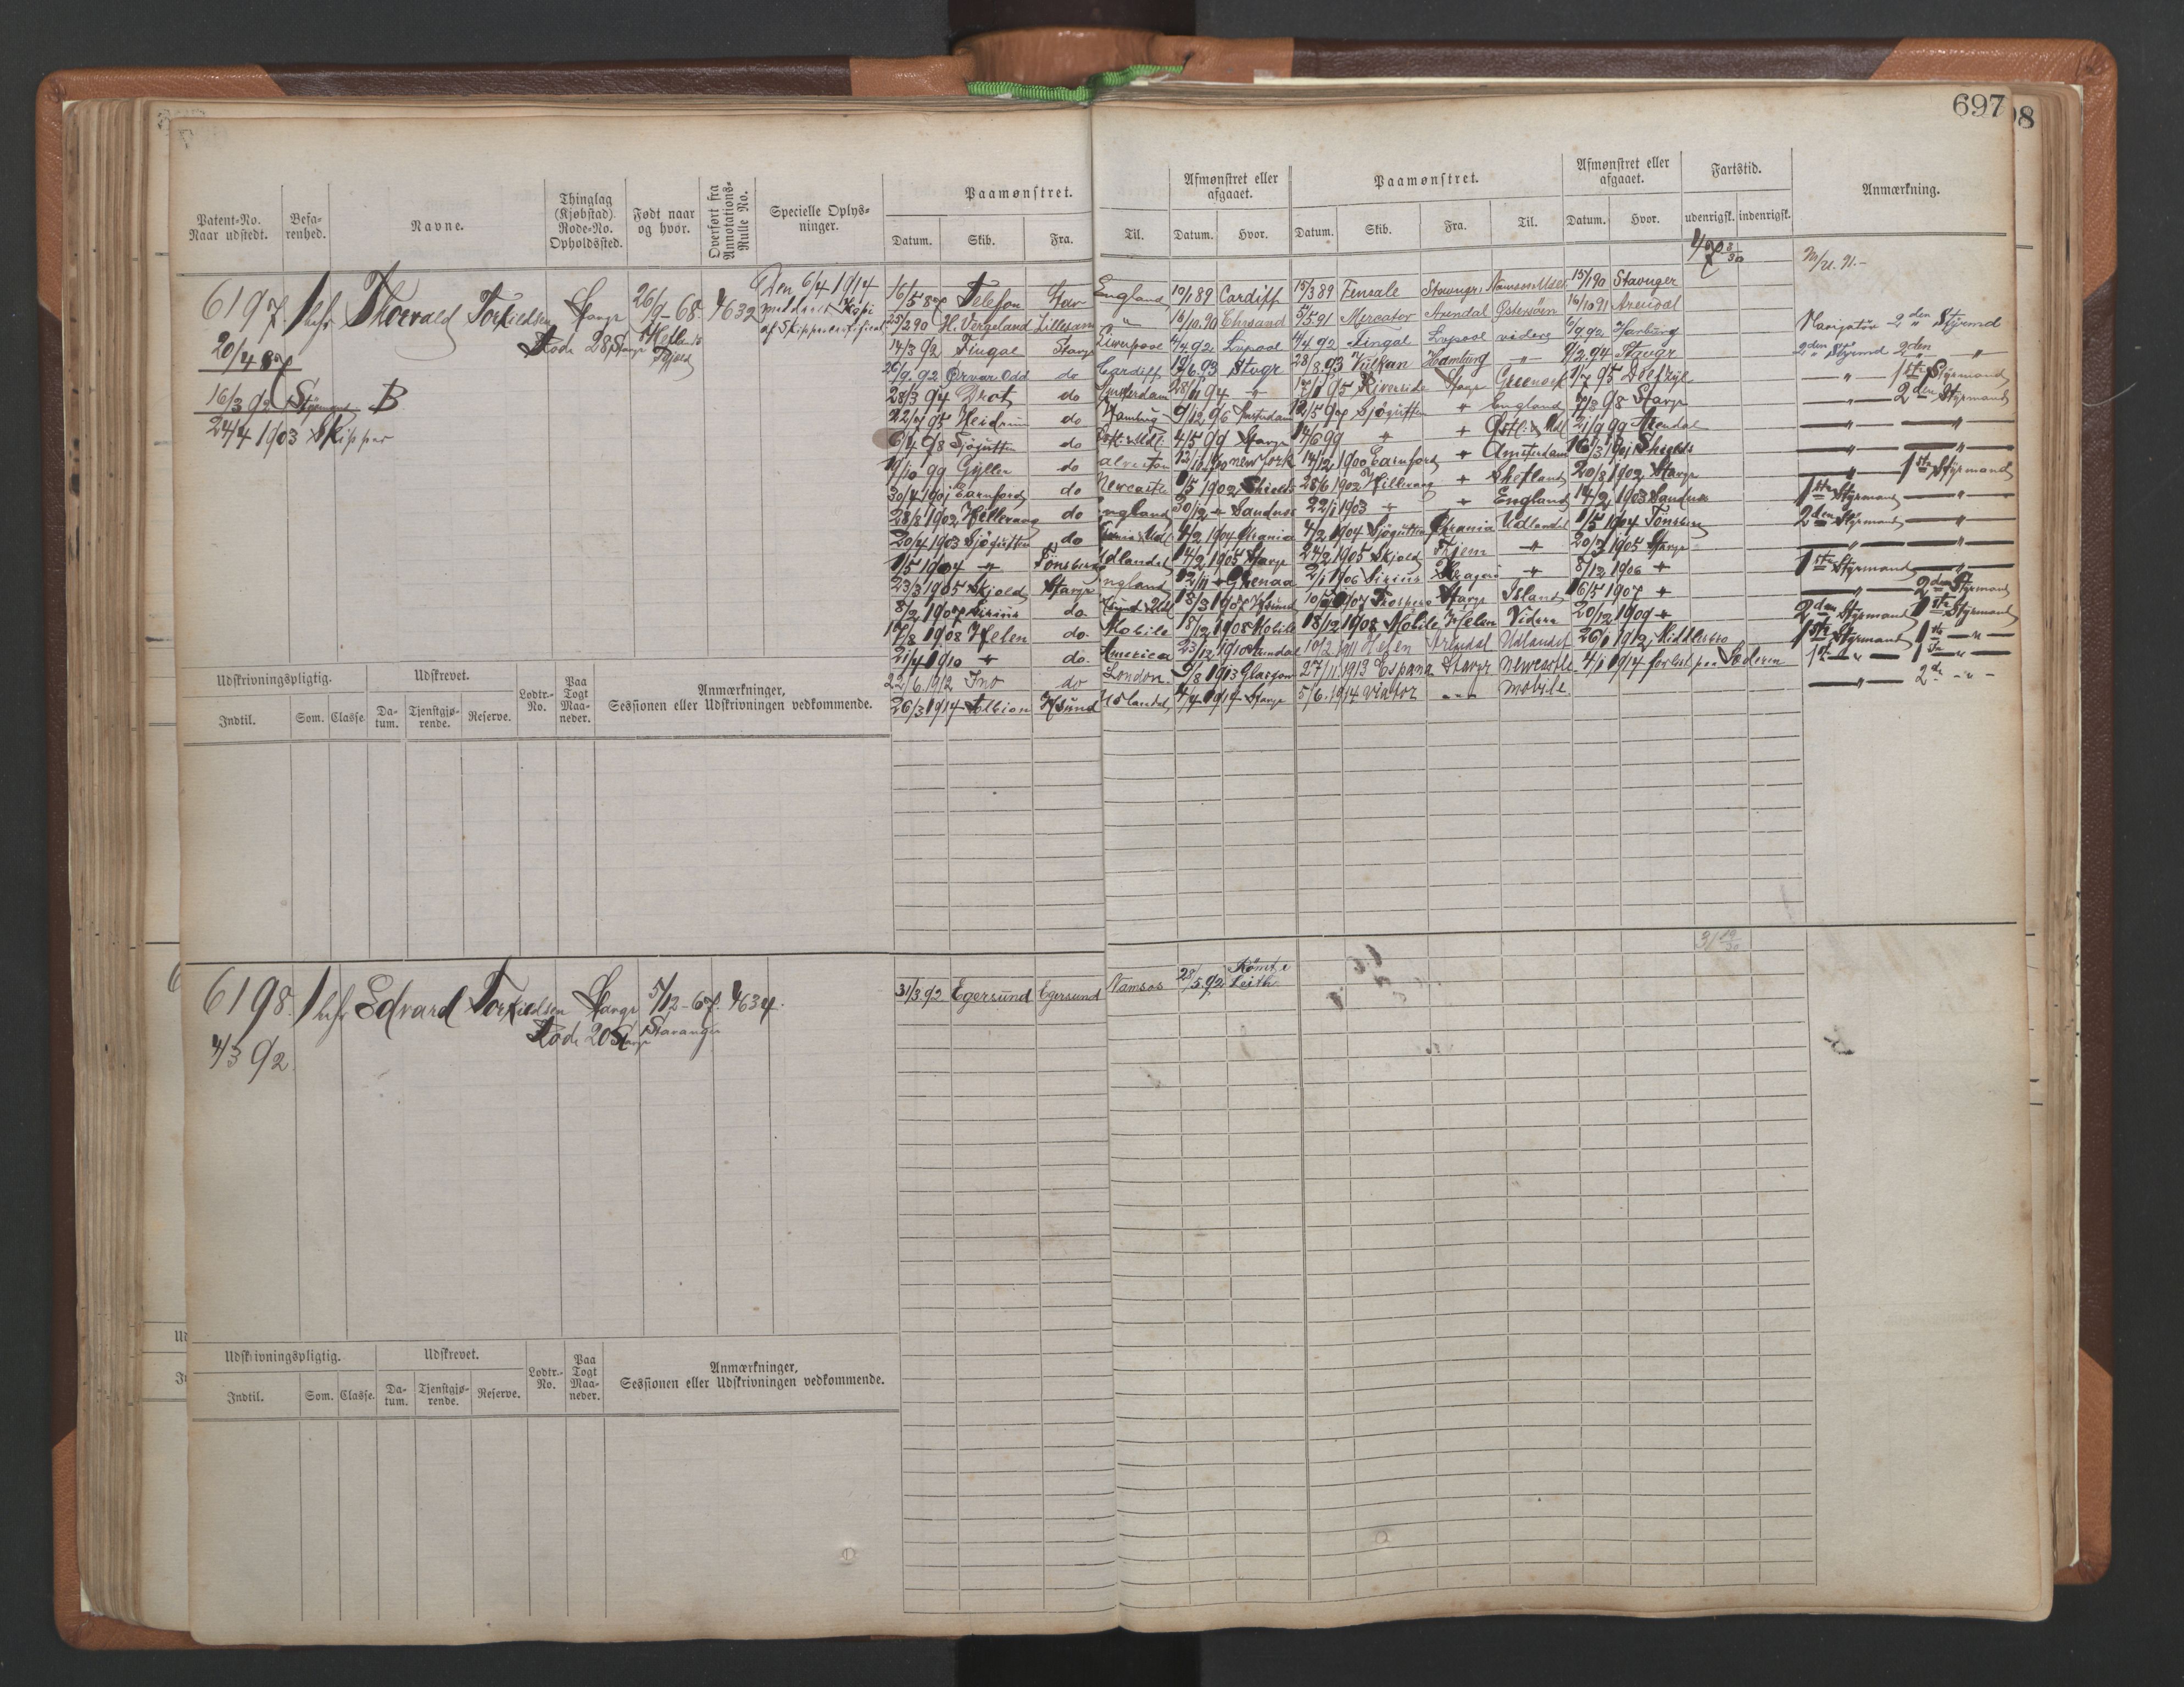 697
Patent-No. Naar udstedt.
Befarenhed.
Navne.
Thinglag (Kjøbstad) Rode-No. Opholdssted.
Født naar og hvor.
Overført fra Annotations-Rulle No.
Specielle Oplysninger.
Paamønstret.
Datum. Skib. Fra. Til.
Afmønstret eller afgaaet.
Datum. Hvor.
Paamønstret.
Datum. Skib. Fra. Til.
Afmønstret eller afgaaet.
Datum. Hvor.
Fartstid.
udenrigsk. indenrigsk.
Anmærkning.
6197 Thorvald Torkildsen Stavgr 26/9-68 4632
Rode 28
20/4 87
16/3 92 Styrmand B
24/4 1903 Skipper
Den 6/4 1914
meddelt Kopi
af Skippercertificat
16/5 87 Telefon Stav England 19/1 89 Cardiff 15/3 89 Stavngr 15/1 90 Stavnger
25/2 90 H. Vergeland Lillesand " 16/10.90 Chrsand 5/5 91 Mercator Arendal Østersøen 16/10 91 Arendal
14/3 92 Fingal Stavgr Liverpool 4/4 92 Lvpool 4/4 92 Fingal Lvpool videre 6/9 92 Harburg Navigatör 2den Styrmd
26/9. 92 Ørvar Odd do Cardiff 19/6.93 Stvgr 28/8 93 Vulkan Hamburg — " — 9/2 94 Stavgr 2den Styrmd 2den — " —
28/3 94 Drot do Amsterdam 28/11 94 " 17/1 95 Riverside Stavgr Greenock 11/7 95 Delfzyl — " — 1ste Styrmand
22/7 95 Heidrun do Hamburg 9/12 96 Amsterdam 12/5 97 Sjøgutten " England 7/8 98 Stavgr — " — 2den Styrmand
6/4 98 Sjøgutten do 4/5 99 Stavgr 14/6 99 " " 21/9 99 Arendal — " — — " —
19/10 99 Gyller do 12/11 1900 New York 14/12 1900 Earnford " Amsterdam 16/3 1901 Shields — " — — " —
30/4 1901 Earnford do Newcastle 1/5 1902 Shields 28/6 1902 Hillevaag " Shetland 20/8 1902 Stavgr — " — 1ste Styrmand
28/8 1902 Hillevaag do England 30/12 " Sandnes 22/1 1903 " " England 14/2 1903 Sandnes 1ste Styrmand — " —
20/4 1903 Sjøgutten do 4/2 1904 Chrania 4/2 1904 Sjøgutten Chrania Udlandet 1/5 1904 Tønsberg 2den Styrmand — " —
1/5 1904 " Tønsberg Udlandet 14/2 1905 Stavgr 24/2 1905 Skjold — " — 20/3 1905 Stavgr — " — — " —
23/3 1905 Skjold Stavgr England 12/11 " Grenaa 2/1 1906 Sirius Kragerø " 8/12 1906 " 1ste Styrmand — " —
8/2 1907 Sirius do 18/3 1907 1907 Prospero Stavgr Island 16/5 1907 " — " — 2den Styrm
17/8 1908 Helen do Mobile 18/12 1908 Mobile 18/12 1908 Mobile Helen Videre 20/12 1909 " 2den Styrmand 1ste Styrmand
21/4 1910 " do. America 23/12 1910 Arendal 10/2 1911 Helen Arendal Udlandet 26/1 1912 Middlesbro 1ste Styrmand 1ste — " —
22/6 1912 Ino do London 9/8 1913 Glasgow 27/11 1913 Espana Stavgr Newcastle 4/1 1914 forlist paa Söderen 1ste — " — 1ste — " —
26/3 1914 Albion Udlandet 4/4 1914 Stavgr 5/6.1914 Viator — " — Mobile — " — 2de — " —
Udskrivningspligtig.
Indtil. Som. Classe.
Udskrevet.
Datum. Tjenstgjørende. Reserve.
Lodtr.-No.
Paa Togt Maaneder.
Anmærkninger, Sessionen eller Udskrivningen vedkommende.
6198 Edvard Torkildsen Stavgr 5/12-67. 4634.
Rode 20 Stavanger
4/3 92
31/3 92 Egersund Egersund Namsos 28/5.92 Leith
Udskrivningspligtig.
Indtil. Som. Classe.
Udskrevet.
Datum. Tjenstgjørende. Reserve.
Lodtr.-No.
Paa Togt Maaneder.
Anmærkninger, Sessionen eller Udskrivningen vedkommende.